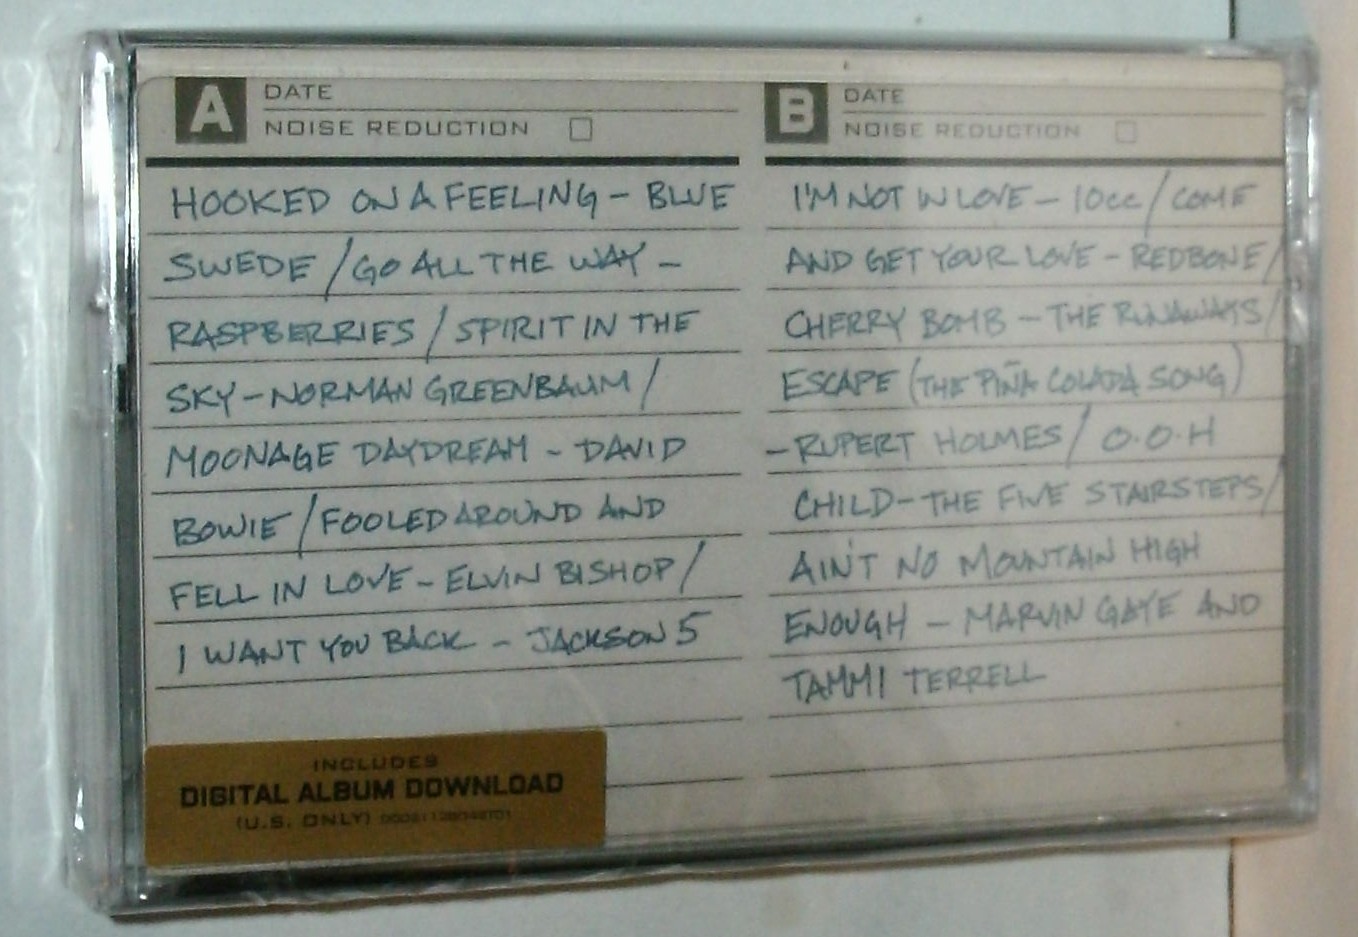 A DATE
NOISE REDUCTION
HOOKED ON A FEELING – BLUE
SWEDE / GO ALL THE WAY –
RASPBERRIES / SPIRIT IN THE
SKY – NORMAN GREENBAUM /
MOONAGE DAYDREAM – DAVID
BOWIE / FOOLED AROUND AND
FELL IN LOVE – ELVIN BISHOP /
I WANT YOU BACK – JACKSON 5
INCLUDES
DIGITAL ALBUM DOWNLOAD
(U.S. ONLY)
B DATE
NOISE REDUCTION
I'M NOT IN LOVE – 10cc / COME
AND GET YOUR LOVE – REDBONE /
CHERRY BOMB – THE RUNAWAYS /
ESCAPE (THE PIÑA COLADA SONG)
– RUPERT HOLMES / O·O·H
CHILD – THE FIVE STAIRSTEPS /
AIN'T NO MOUNTAIN HIGH
ENOUGH – MARVIN GAYE AND
TAMMI TERRELL